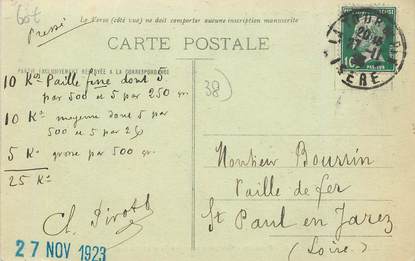 60t
Le Verso (côté vue) ne doit comporter aucune inscription manuscrite
pressé
CARTE POSTALE
PARTIE EXCLUSIVEMENT RÉSERVÉE A LA CORRESPONDANCE
10 Kos Paille fine dont 5
par 500 et 5 par 250 gr
10 Ks moyenne dont 5 par
500 et 5 par 2
5 Ks grosse par 500 gr
25 Ks
Ch.
27 NOV 1923
38
ISÈRE
Monsieur Boussin
Paille de fer
St Paul en Jarez
(Loire)